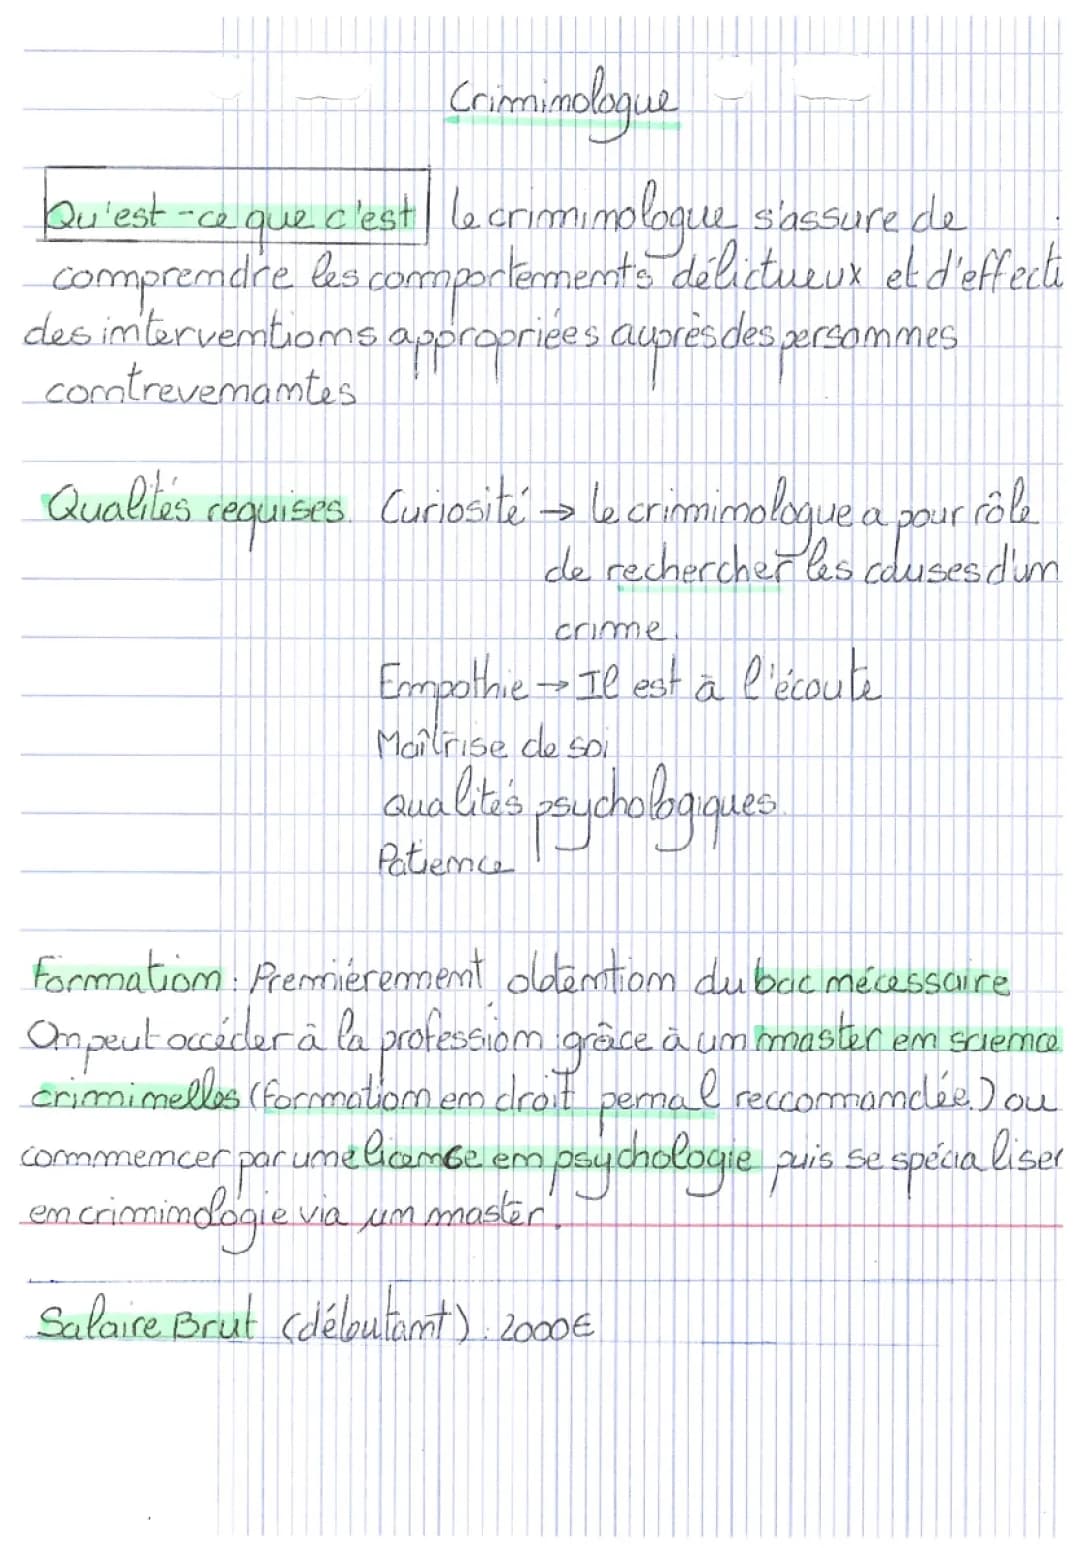 Criminologue
Qu'est-ce que c'est le criminologue s'assure de
comprendre les comportements délictueux et d'effecti
des interventions appropriées auprès des personnes
contrevenantes
Qualités requises. Curiosité → le criminologue a pour rôle
de rechercher les causes d'un
crime.
Empathie → Il est à l'écoute
Maîtrise de soi
qualités psychologiques.
Patience
Formation : Premiérement obtention du bac nécessaire
On peut accéder à la profession grâce à un master en science
criminelles (formation en droit penal reccomandée.) ou
commencer par une licence en psychologie puis se spécialiser
en criminologie via un master.
Salaire Brut (débutant) : 2000€